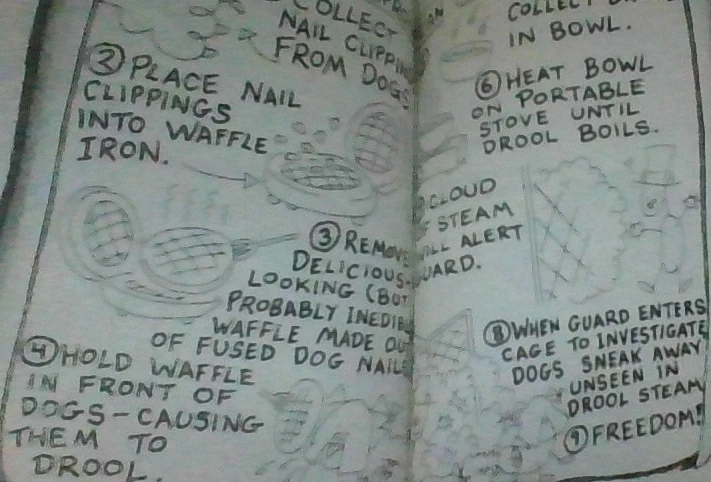 COLLECT
NAIL CLIPPIN
FROM DOGS
② PLACE NAIL
CLIPPINGS
INTO WAFFLE
IRON.
③ REMOVE
DELICIOUS-
LOOKING (BUT
PROBABLY INEDIB
WAFFLE MADE OU
OF FUSED DOG NAILS
④ HOLD WAFFLE
IN FRONT OF
DOGS - CAUSING
THEM TO
DROOL.
COLLECT
IN BOWL.
⑥ HEAT BOWL
ON PORTABLE
STOVE UNTIL
DROOL BOILS.
CLOUD
STEAM
ILL ALERT
UARD.
⑧ WHEN GUARD ENTERS
CAGE TO INVESTIGATE
DOGS SNEAK AWAY
UNSEEN IN
DROOL STEAM
⑨ FREEDOM!